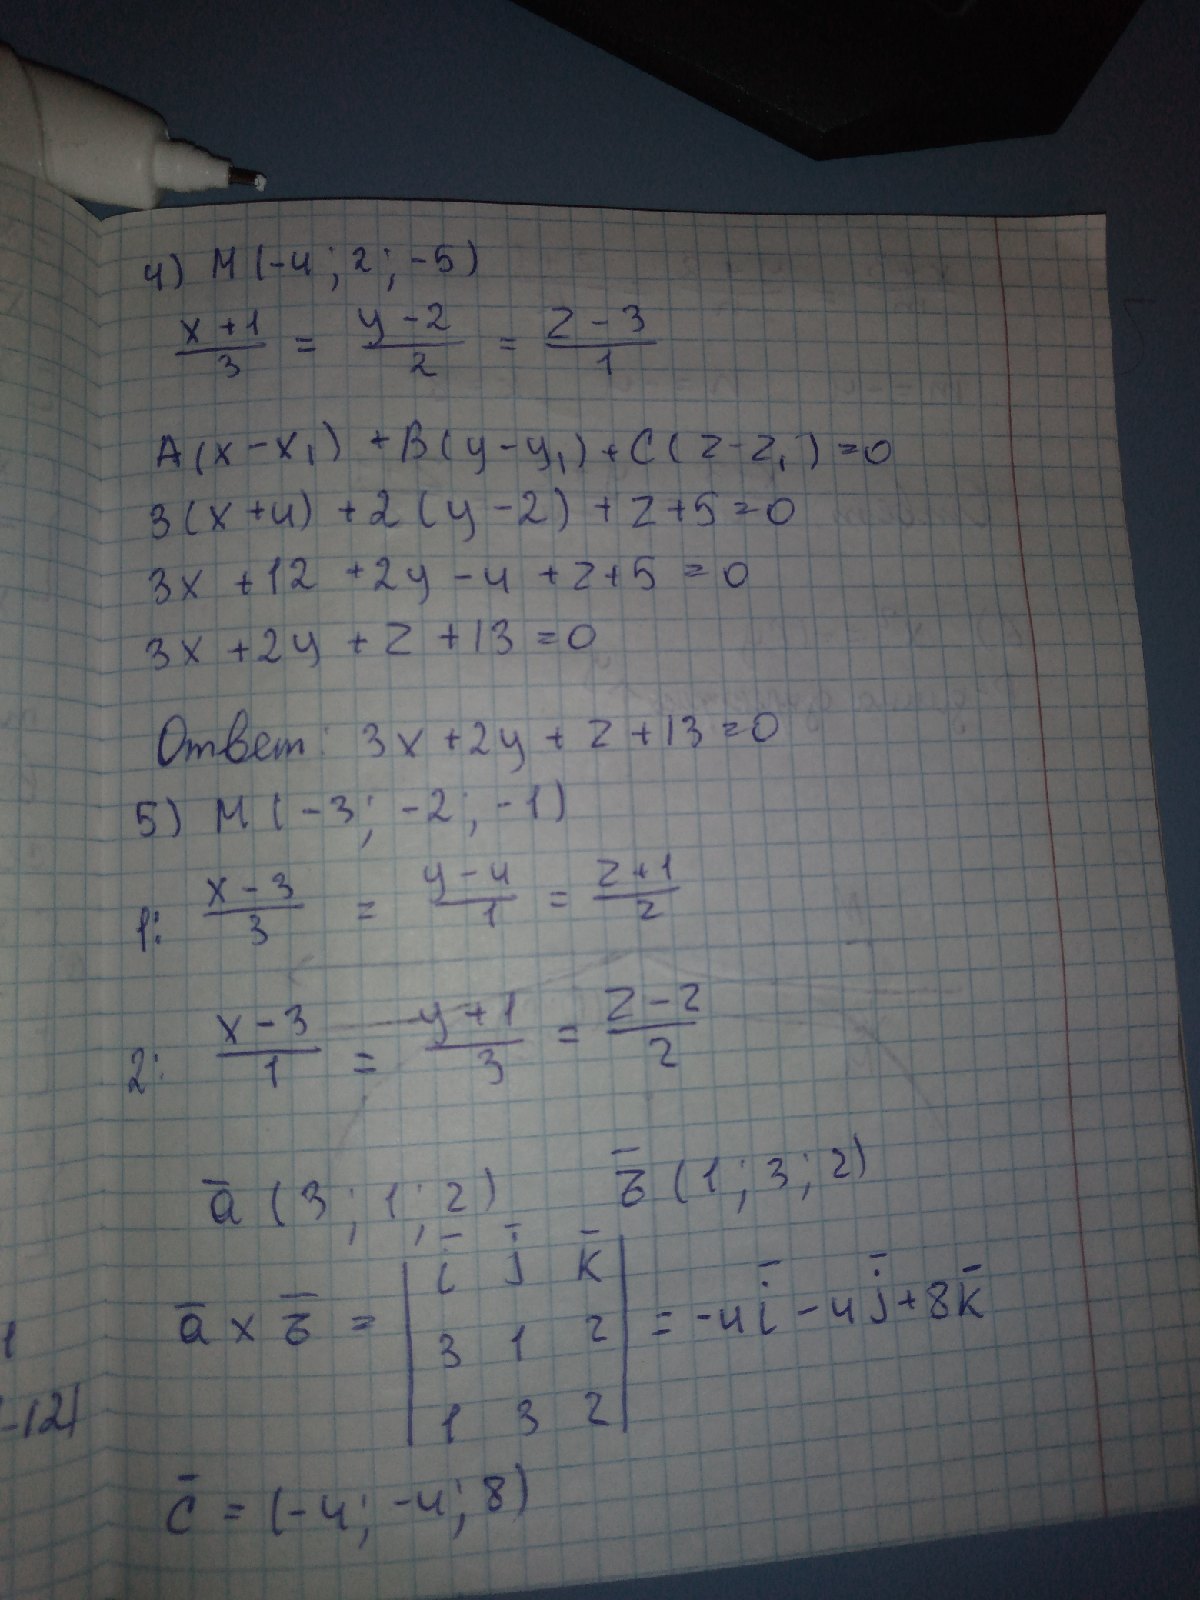 4) М (-4; 2; -5)
x+1/3 = y-2/2 = z-3/1
A(x-x₁) + B(y-y₁) + C(z-z₁) = 0
3(x+4) + 2(y-2) + z+5=0
3x + 12 + 2y - 4 + z+5 = 0
3x + 2y + z + 13 = 0
Ответ: 3x + 2y + z + 13 = 0
5) М (-3; -2; -1)
1: x-3/3 = y-4/1 = z+1/2
2: x-3/1 = y+1/3 = z-2/2
a̅ (3; 1; 2) б̅ (1; 3; 2)
a̅ x б̅ = | i̅ j̅ k̅ | = -4i̅ - 4j̅ + 8k̅
3 1 2
1 3 2
c̅ = (-4; -4; 8)
1
-12)